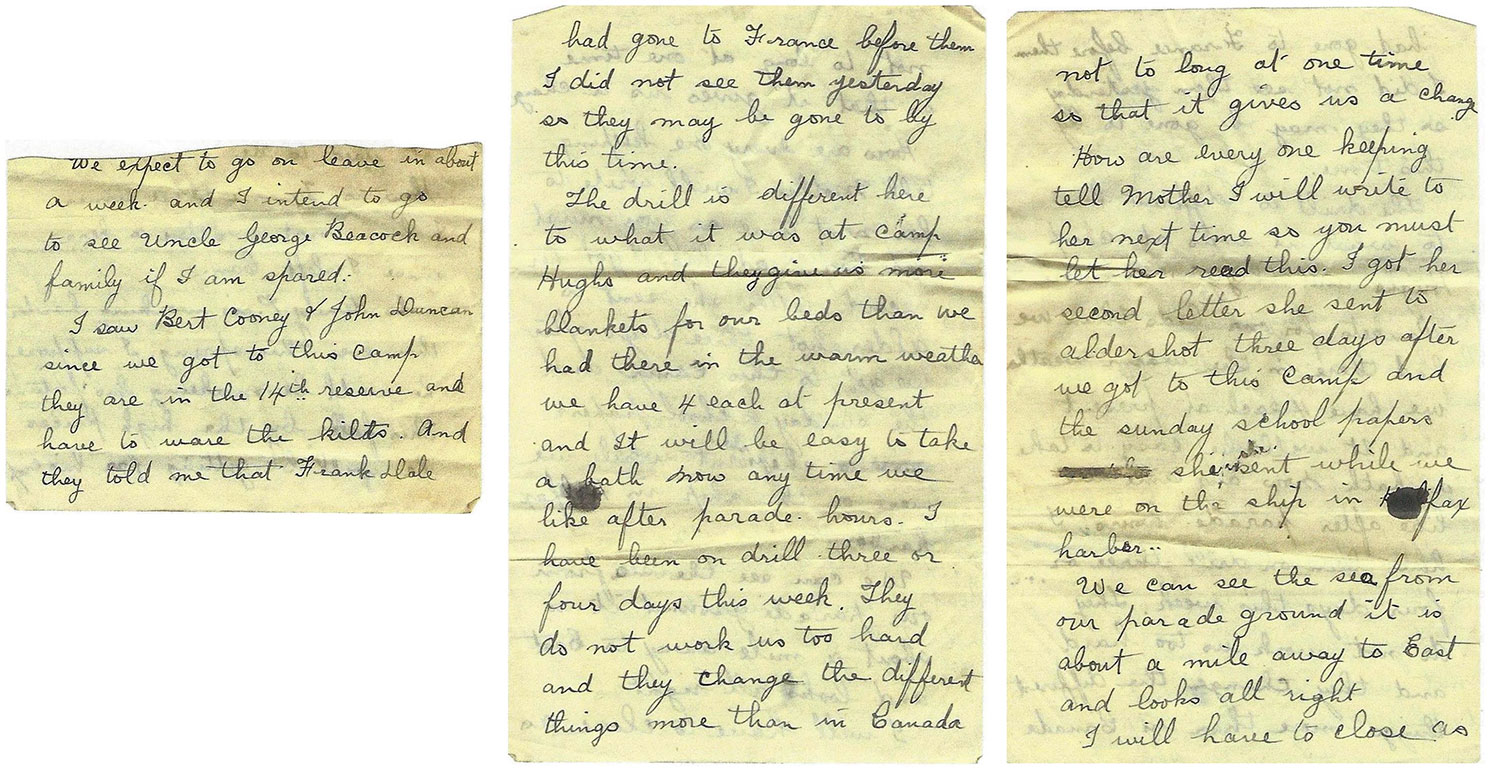 We expect to go on leave in about
a week. and I intend to go
to see Uncle George Beacock and
family if I am spared.
I saw Bert Cooney & John Duncan
since we got to this camp
they are in the 14th reserve and
have to ware the kilts. And
they told me that Frank Dale
had gone to France before them
I did not see them yesterday
so they may be gone to by
this time.
The drill is different here
to what it was at camp
Hughs and they give us more
blankets for our beds than we
had there in the warm weatha
we have 4 each at present
and It will be easy to take
a bath now any time we
like after parade hours. I
have been on drill three or
four days this week. They
do not work us too hard
and they change the different
things more than in Canada
not to long at one time
so that it gives us a change
How are every one keeping
tell Mother I will write to
her next time so you must
let her read this. I got her
second letter she sent to
aldershot three days after
we got to this Camp and
the sunday school papers
she sent while we
were on the ship in Halifax
harber..
We can see the sea from
our parade ground it is
about a mile away to East
and looks all right
I will have to close as